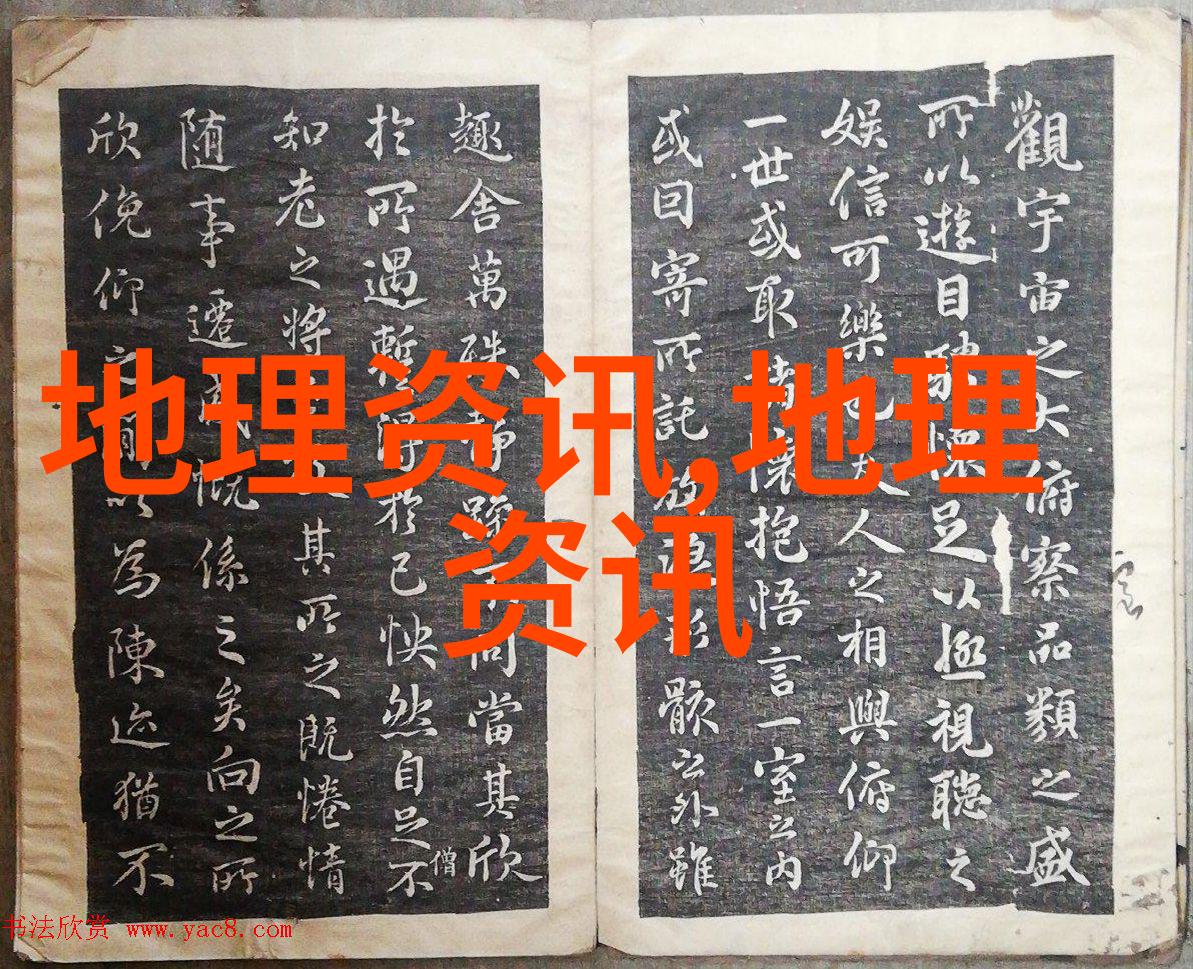 地理资讯,地理
资讯
觀宇宙之大俯察品類之盛
所以遊目騁懷足以極視聽之
娛信可樂也夫人之相與俯仰
一世或取諸懷抱悟言一室之內
或因寄所託放浪形骸之外雖
趣舍萬殊靜躁不同當其欣
於所遇暫得於己怏然自足不
僧
知老之將其所之既惓情
随事遷感慨係之矣向之所
欣俛仰之間以為陳迹猶不
书法欣赏 www.yac8.com